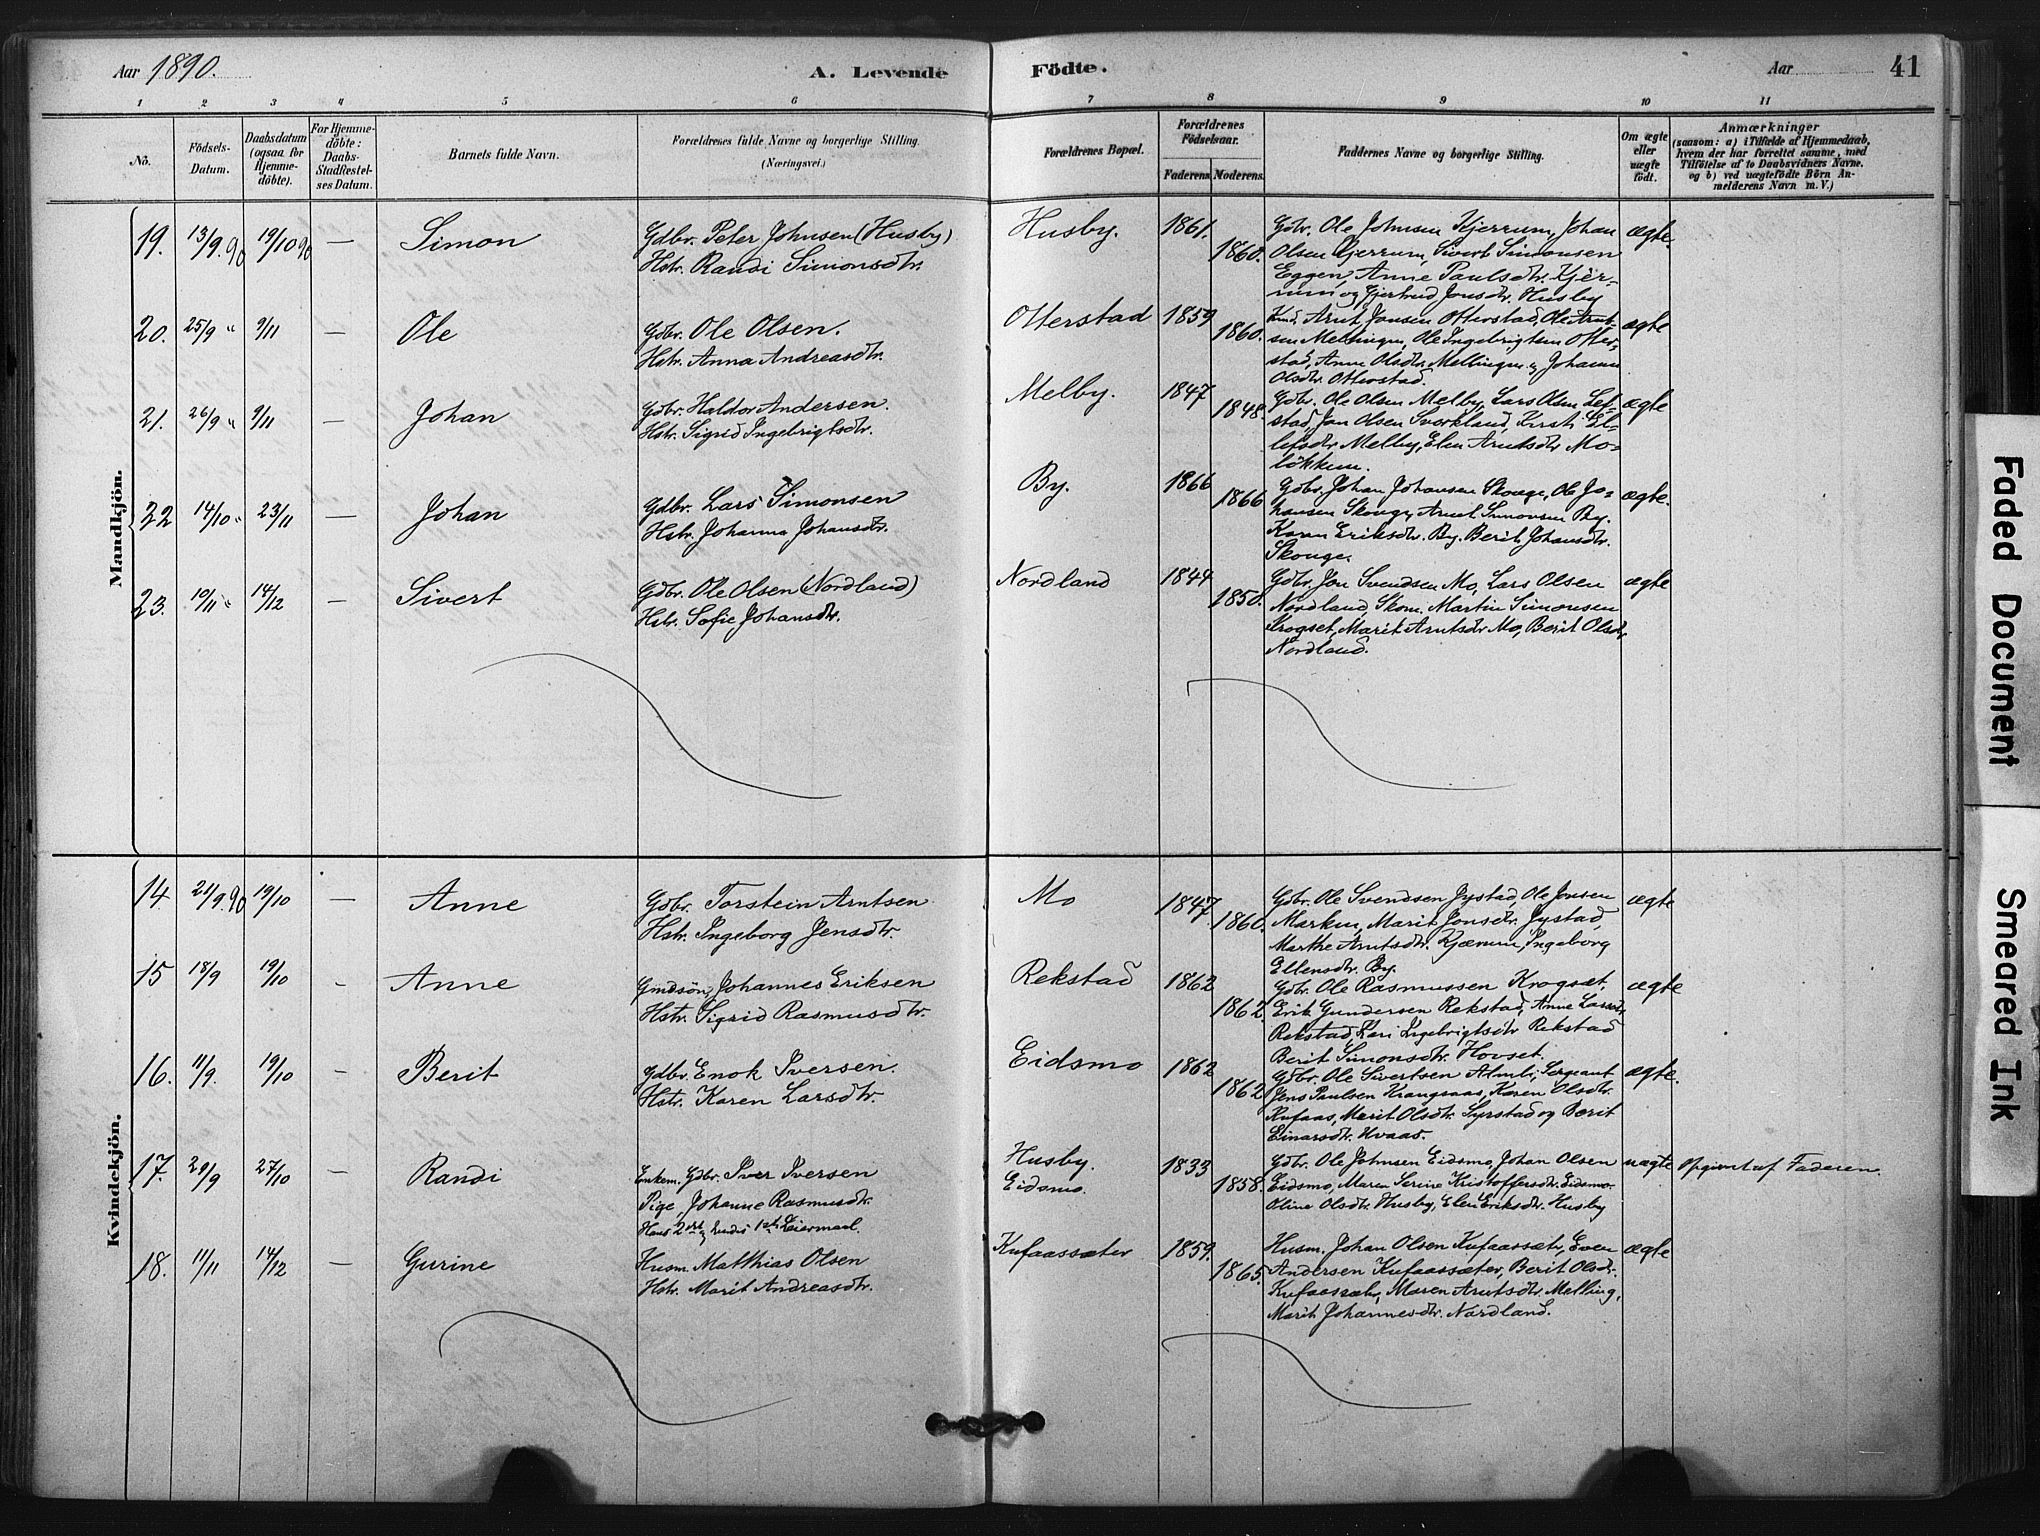 Aar 1890. A. Levende Födte. Aar 41
1 2 3 4 5 6 7 8 9 10 11
No. Födsels-Datum. Daabsdatum (ogsaa for Hjemme-döbte). For Hjemme-döbte: Daabs-Stadfæstel-ses Datum. Barnets fulde Navn. Forældrenes fulde Navne og borgerlige Stilling. (Næringsvei.) Forældrenes Bopæl. Forældrenes Födselsaar. Faderens Moderens. Faddernes Navne og borgerlige Stilling. Om ægte eller uægte födt. Anmærkninger
(saasom: a) i Tilfælde af Hjemmedaab, hvem der har forrettet samme, med Tilföielse af to Daabsvidners Navne, og b) ved uægtefödte Börn An-melderens Navn m. V.)
Mandkjön.
19. 13/9 90 19/10 90 — Simon Gdbr. Peter Johnsen (Husby) Husby. 1861. Gdbr. Ole Johnsen Kjerrum, Johan ægte.
Hstr. Randi Simonsdtr. 1860. Olsen Kjerrum, Sivert Simonsen
Eggen, Anne Paulsdtr. Kjer-
rum og Gjertrud Jonsdtr. Husby
20. 25/9 " 9/11 — Ole Gdbr. Ole Olsen. Otterstad 1859 Arnt Jonsen Otterstad, Ole Arnt- ægte
Hstr. Anna Andreasdtr. 1860. sen Mellingen, Ole Ingebrigtsen Otter-
stad, Anne Olsdtr. Mellingen, Johanna
Olsdtr. Otterstad.
21. 26/9 " 9/11 — Johan Gdbr. Haldor Andersen. Melby. 1847 Gdbr. Ole Olsen Melby, Lars Olsen ægte
Hstr. Sigrid Ingebrigtsdtr. 1848. stad, Jon Olsen Svorkland, Kirsti El-
lefsdtr. Melby, Elen Arntsdtr. Mo-
lökken.
22 14/10 " 23/11 — Johan Gdbr. Lars Simonsen By. 1866 Gdbr. Johan Johansen Skouge, Ole Jo- ægte.
Hstr. Johanna Johansdtr. 1866 hansen Skouge, Arnt Simonsen By.
Karen Eriksdtr. By. Berit Johansdtr.
Skouge.
23. 10/11 " 14/12 — Sivert Gdbr. Ole Olsen (Nordland) Nordland 1844 Gdbr. Jon Svendsen Mo, Lars Olsen ægte
Hstr. Sofie Johansdtr. 1850. Nordland, Skom. Martin Simonsen
Krogset, Marit Arntsdtr. Mo, Berit Olsdtr.
Nordland.
Kvindekjön.
14. 21/9 90 19/10 — Anne Gdbr. Torstein Arntsen Mo 1847. Gdbr. Ole Svendsen Jystad, Ole Jonsen ægte
Hstr. Ingeborg Jensdtr. 1860. Marken, Marit Jonsdtr. Jystad,
Marthe Arntsdtr. Kjærem, Ingeborg
Ellensdtr. By.
15 18/9 19/10 - Anne Gmdsön, Johannes Eriksen Rekstad 1862 Gdbr. Ole Rasmussen Krogset, ægte
Hstr. Sigrid Rasmusdtr. 1862. Erik Gundersen Rekstad, Anne Larsdtr.
Rekstad, Kari Ingebrigtsdtr Rekstad
Berit Simonsdtr. Hovset.
16. 11/9. 19/10 - Berit Gdbr. Enok Iversen. Eidsmo 1862 Gdbr. Ole Sivertsen Almli, Sergeant ægte.
Hstr. Karen Larsdtr. 1862 Jens Paulsen Krangsaas, Karen Olsdtr.
Kufaas, Marit Olsdtr. Syrstad og Berit
Einarsdtr. Hvaas.
17. 20/9 27/10 — Randi Enkem. Gdbr. Iver Iversen Husby. 1833 Gdbr. Ole Johnsen Eidsmo, Johan Olsen uægte Opgivet af Faderen.
Pige, Johanne Rasmusdtr. Eidsmo. 1858. Eidsmo, Maren Serine Kristoffersdtr. Eidsmo.
Hans 2det, hendes 1ste Leiermaal. Oline Olsdtr. Husby, Elen Eriksdtr. Husby
18. 11/11 14/12 — Gurine Husm. Matthias Olsen Kufaassæter 1859. Husm. Johan Olsen Kufaassæter, Even ægte
Hstr. Marit Andreasdtr. 1865. Andersen Kufaassæter, Berit Olsdtr.
Kufaassæter, Maren Arntsdtr. Melling,
Marit Johannesdtr. Nordland.
Faded Document
Smeared Ink